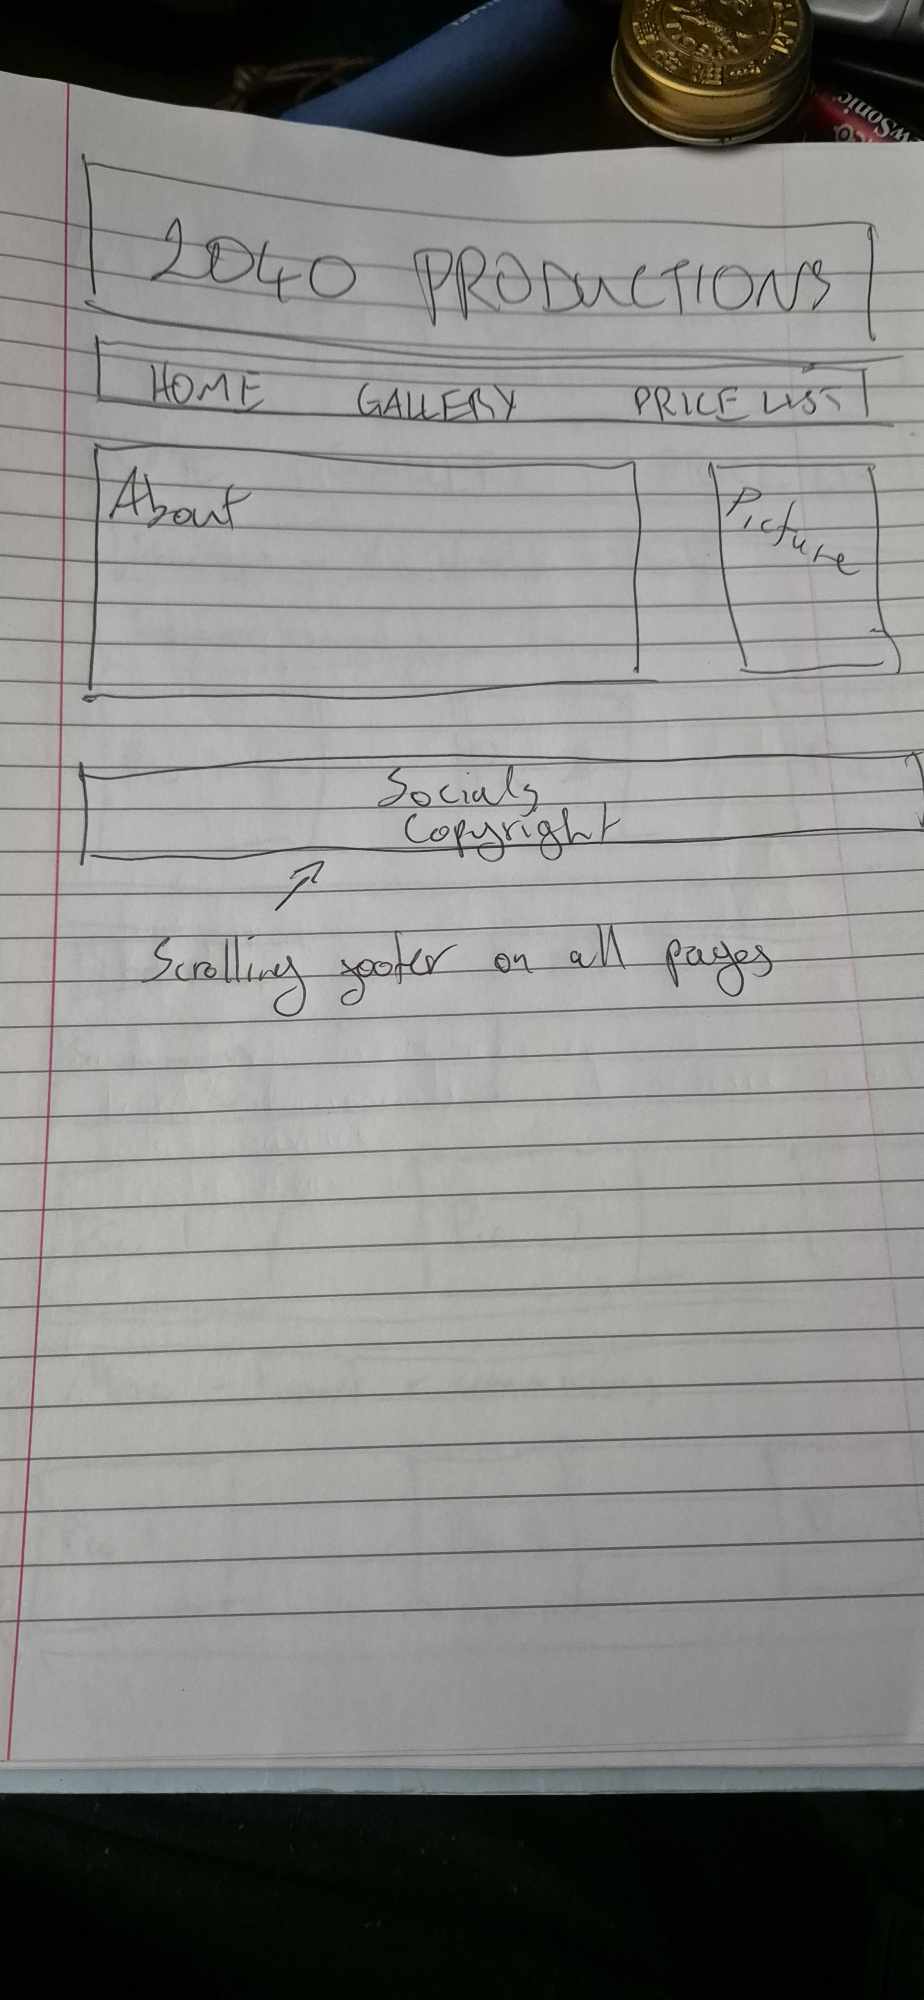 2040 PRODUCTIONS
HOME GALLERY PRICE LIST
About
Picture
Socials
Copyright
Scrolling footer on all pages